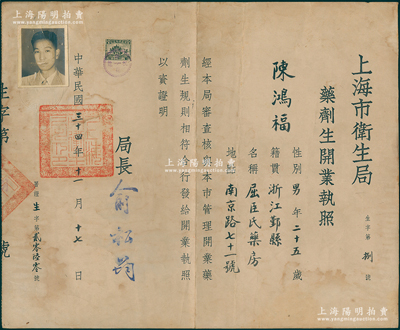 上海陽明拍賣
www.ymauction.com
上海市衛生局
藥劑生開業執照
生字第 捌 號
陳鴻福
性別 男 年 二十五 歲
籍貫 浙江鄞縣
名稱 屈臣氏藥房
地址 南京路七十一號
經本局審查核與本市管理開業藥
劑生規則相符合行發給開業執照
以資證明
局長 俞松筠
中華民國三十四年十一月十七日
生字第 號
生字第貳零陸零號
上海陽明拍賣
www.ymauction.com